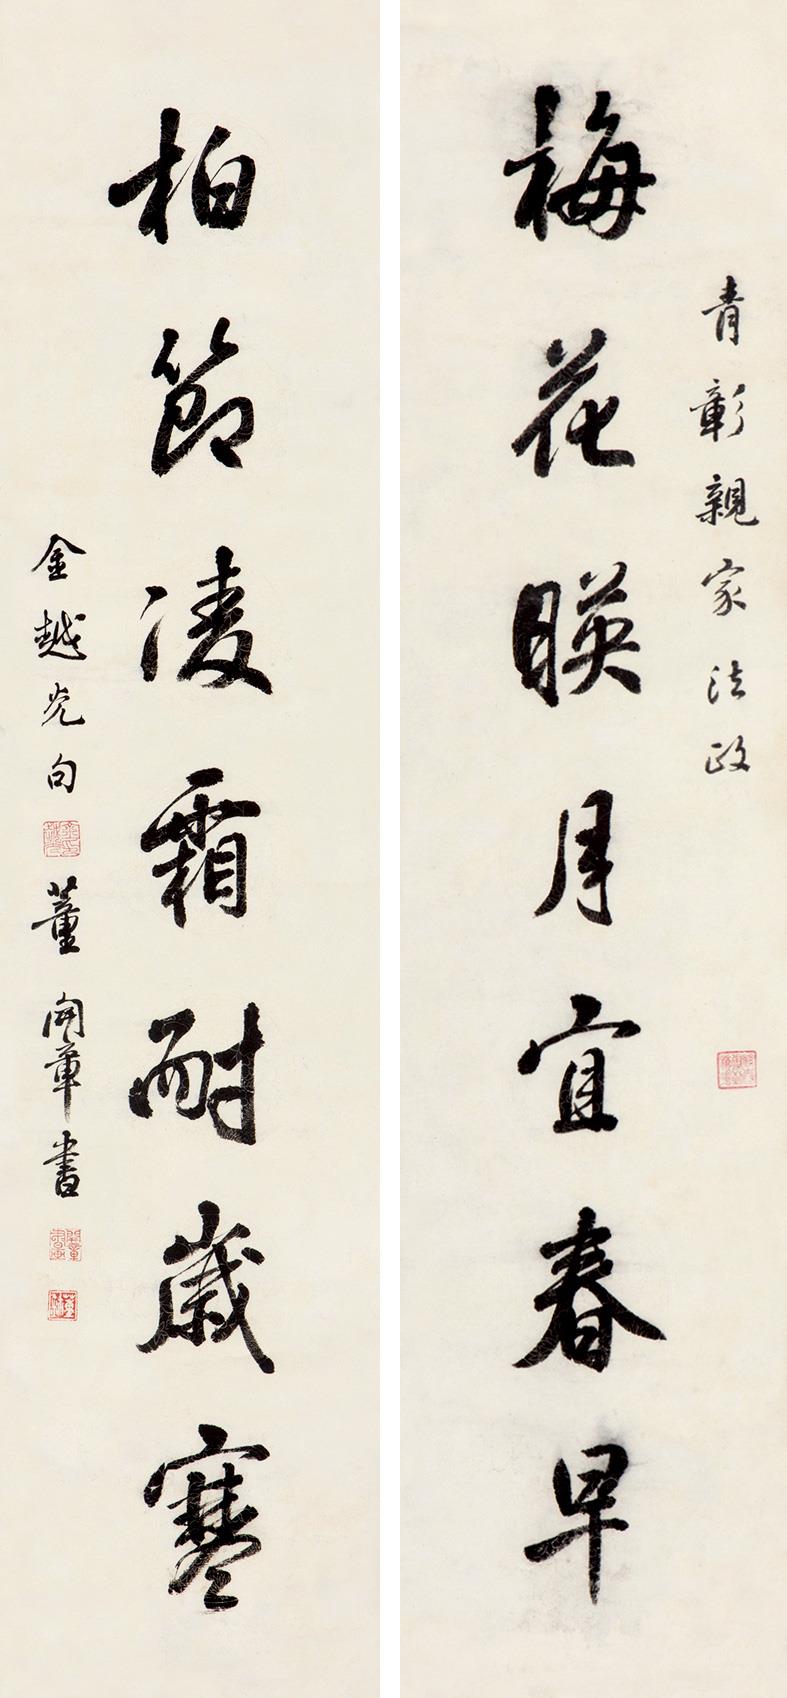 梅花暎月宜春早
青彰親家法政
柏節凌霜耐歲寒
金越光句
董開章書